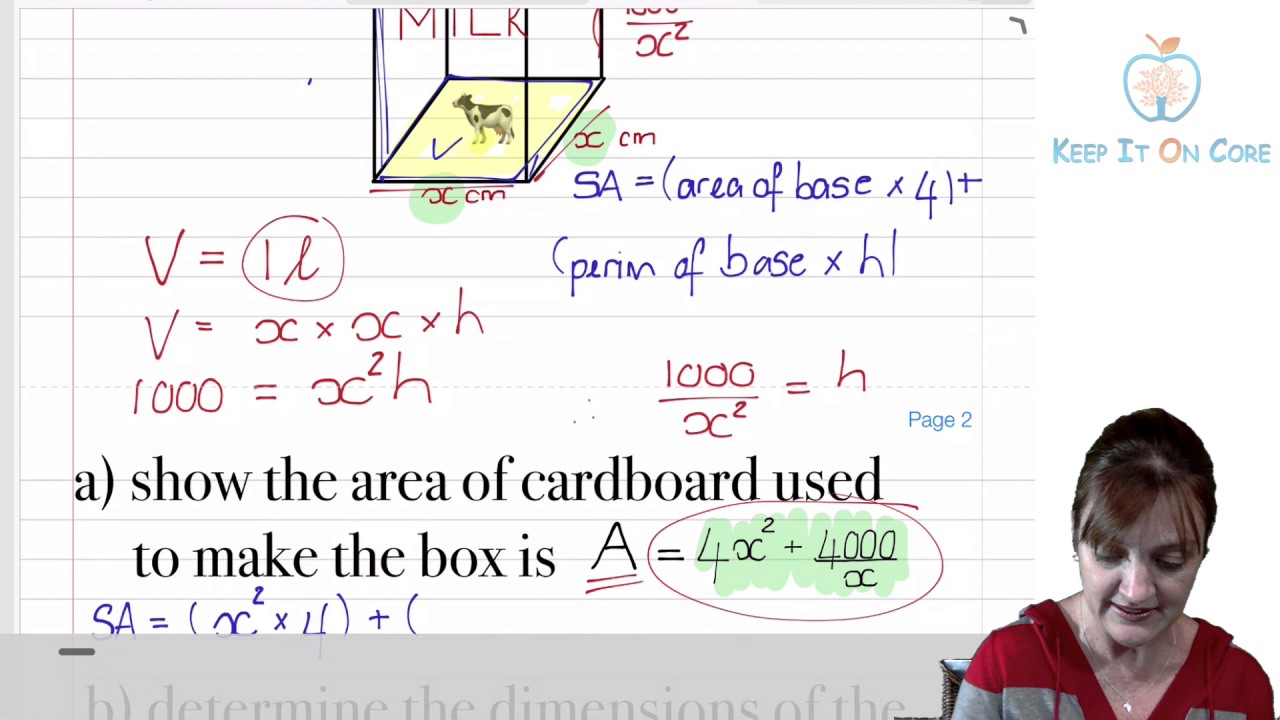 MILK
1000
x²
x cm
x cm
SA = (area of base × 4) +
(perim of base × h)
V = 1 l
V = x × x × h
1000 = x²h
∴ 1000/x² = h
Page 2
a) show the area of cardboard used
to make the box is A = 4x² + 4000/x
SA = (x² × 4) + (
b) determine the dimensions of the
KEEP IT ON CORE